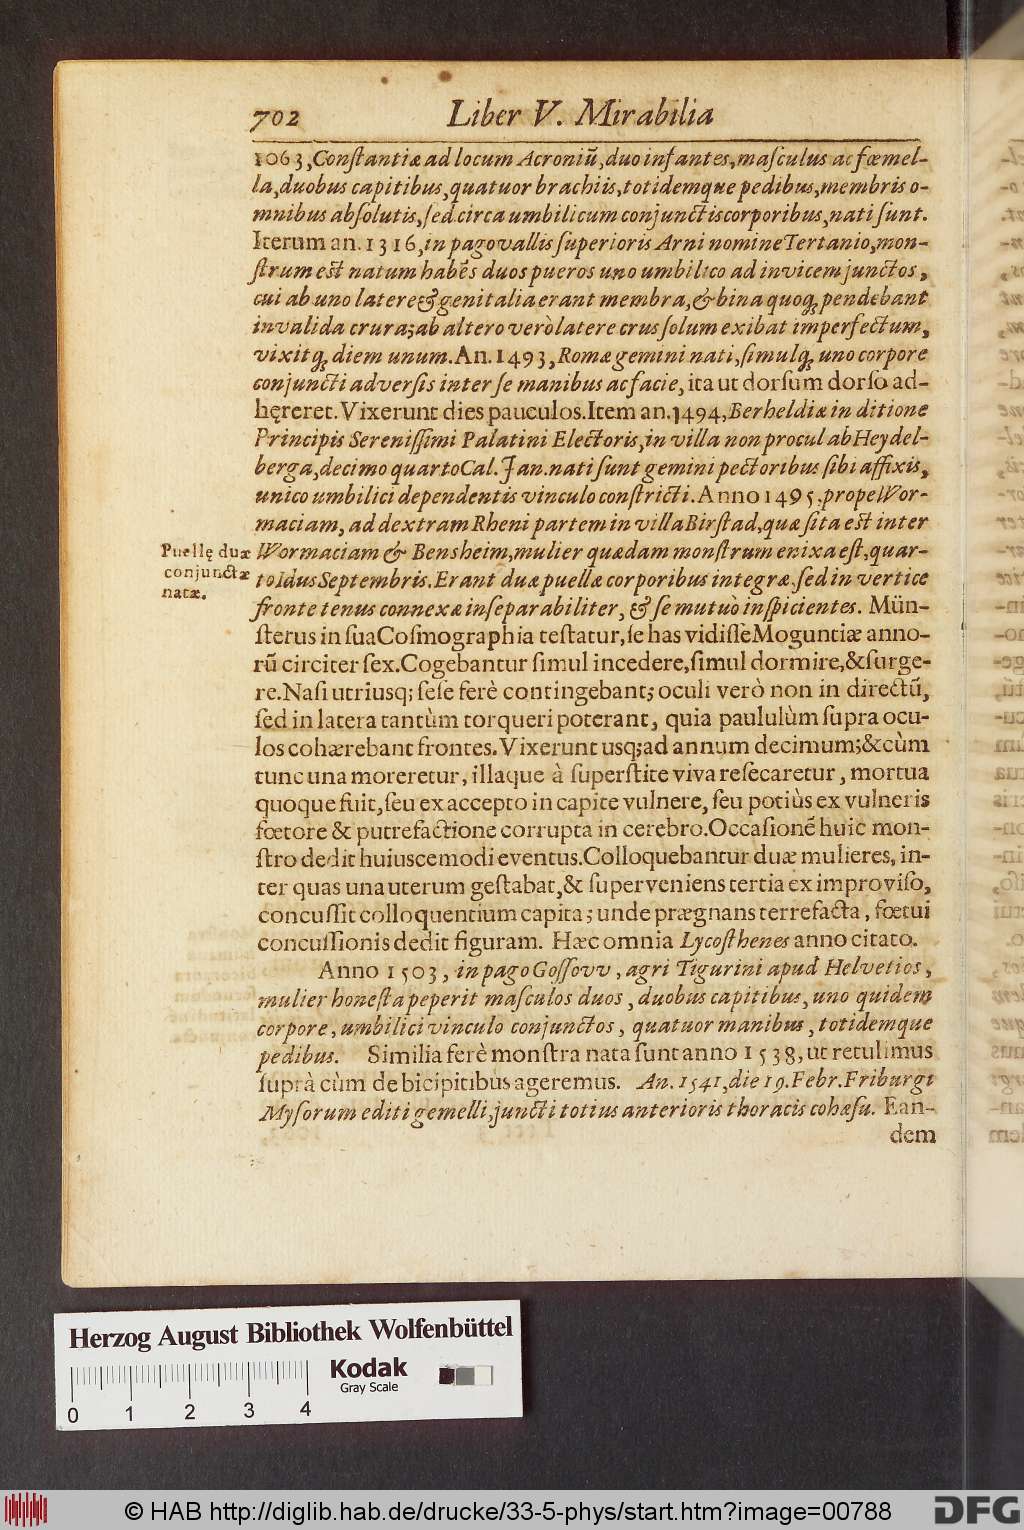 702 Liber V. Mirabilia
1063, Constantiæ ad locum Acroniũ, duo infantes, maſculus ac fœmel-
la, duobus capitibus, quatuor brachiis, totidemque pedibus, membris o-
mnibus abſolutis, ſed circa umbilicum conjunctis corporibus, nati ſunt.
Iterum an. 1316, in pago vallis ſuperioris Arni nomine Tertanio, mon-
ſtrum est natum habẽs duos pueros uno umbilico ad invicem junctos,
cui ab uno latere & genitalia erant membra, & bina quoq; pendebant
invalida crura; ab altero verò latere crus ſolum exibat imperfectum,
vixitq; diem unum. An. 1493, Romæ gemini nati, ſimulq; uno corpore
conjuncti adverſis inter ſe manibus ac facie, ita ut dorſum dorſo ad-
hęreret. Vixerunt dies pauculos. Item an. 1494, Berheldiæ in ditione
Principis Sereniſſimi Palatini Electoris, in villa non procul ab Heydel-
berga, decimo quarto Cal. Jan. nati ſunt gemini pectoribus ſibi affixis,
unico umbilici dependentis vinculo conſtricti. Anno 1495. prope Wor-
maciam, ad dextram Rheni partem in villa Birſtad, quæ ſita est inter
Puellę duæ
conjunctæ
natæ.
Wormaciam & Bensheim, mulier quædam monſtrum enixa eſt, quar-
to Idus Septembris. Erant duæ puellæ corporibus integræ, ſed in vertice
fronte tenus connexæ inſeparabiliter, & ſe mutuò inſpicientes. Mün-
ſterus in ſua Coſmographia teſtatur, ſe has vidiſſe Moguntiæ anno-
rũ circiter ſex. Cogebantur ſimul incedere, ſimul dormire, & ſurge-
re. Naſi utriusq; ſeſe ferè contingebant; oculi verò non in directũ,
ſed in latera tantùm torqueri poterant, quia paululùm ſupra ocu-
los cohærebant frontes. Vixerunt usq; ad annum decimum; & cùm
tunc una moreretur, illaque à ſuperſtite viva reſecaretur, mortua
quoque fuit, ſeu ex accepto in capite vulnere, ſeu potiùs ex vulneris
fœtore & putrefactione corrupta in cerebro. Occaſionẽ huic mon-
ſtro dedit huiuscemodi eventus. Colloquebantur duæ mulieres, in-
ter quas una uterum geſtabat, & ſuperveniens tertia ex improviſo,
concuſſit colloquentium capita; unde prægnans terrefacta, fœtui
concuſſionis dedit figuram. Hæc omnia Lycoſthenes anno citato.
Anno 1503, in pago Goſſovv, agri Tigurini apud Helvetios,
mulier honeſta peperit maſculos duos, duobus capitibus, uno quidem
corpore, umbilici vinculo conjunctos, quatuor manibus, totidemque
pedibus. Similia ferè monſtra nata ſunt anno 1538, ut retulimus
ſuprà cùm de bicipitibus ageremus. An. 1541, die 19. Febr. Friburgi
Myſorum editi gemelli, juncti totius anterioris thoracis cohæſu. Ean-
dem
Herzog August Bibliothek Wolfenbüttel
Kodak
Gray Scale
0 1 2 3 4
© HAB http://diglib.hab.de/drucke/33-5-phys/start.htm?image=00788
DFG